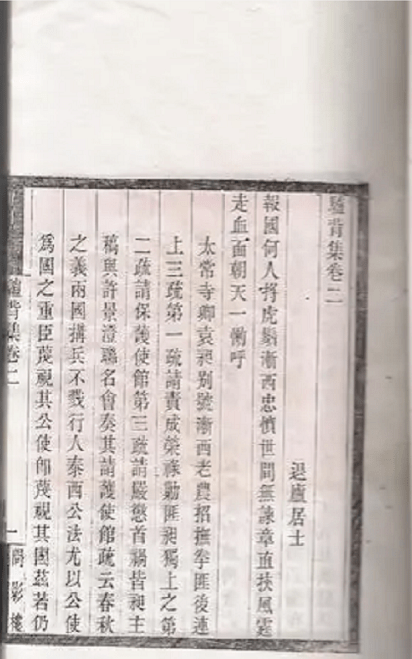 驢背集卷二
退廬居士
報國何人捋虎鬚漸西忠憤世間無諫章直挾風霆
走血面朝天一慟呼
太常寺卿袁昶别號漸西老農招撫拳匪後連
上三疏第一疏請責成榮祿勦匪昶獨上之第
二疏請保護使館第三疏請嚴懲首禍皆昶主
稿與許景澄聯名會奏其請護使館疏云春秋
之義兩國搆兵不戮行人泰西公法尤以公使
爲國之重臣蔑視其公使卽蔑視其國兹若仍
驢背集卷二
一
問影樓